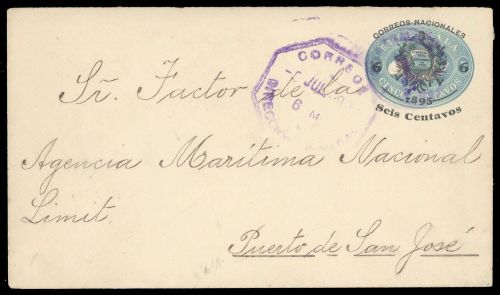 CORREOS NACIONALES
6 6
CINCO CENTAVOS
1895
Seis Centavos
CORREOS
JUN
6 M
Sr. Factor de la
Agencia Marítima Nacional
Limit.
Puerto de San José